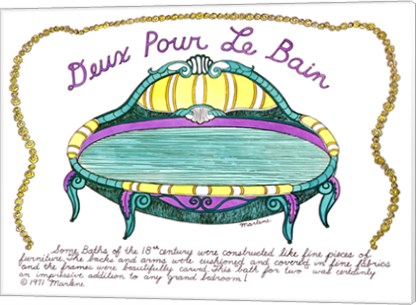 Deux Pour Le Bain
Marlene
Some Baths of the 18th century were constructed like fine pieces of
furniture. The backs and arms were cushioned and covered in fine fabrics
and the frames were beautifully carved. This bath for two was certainly
an impressive addition to any grand bedroom!
© 1971 Marlene